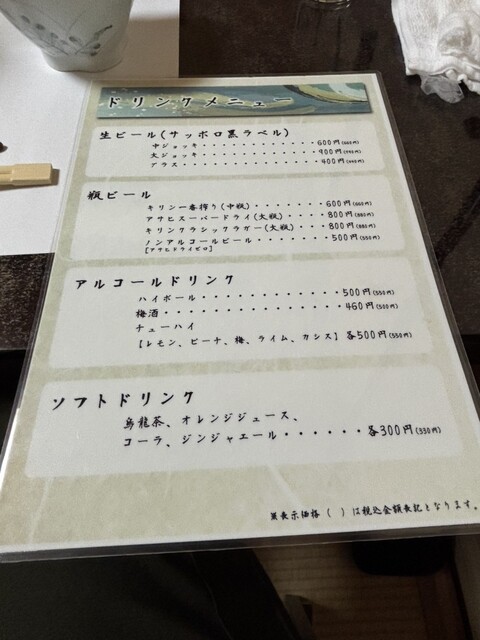 ドリンクメニュー
生ビール(サッポロ黒ラベル)
中ジョッキ・・・・・・・・・・・・600円(660円)
大ジョッキ・・・・・・・・・・・・900円(990円)
グラス・・・・・・・・・・・・・・400円(440円)
瓶ビール
キリン一番搾り(中瓶)・・・・・・・600円(660円)
アサヒスーパードライ(大瓶)・・・・800円(880円)
キリンクラシックラガー(大瓶)・・・800円(880円)
ノンアルコールビール・・・・・・・500円(550円)
[アサヒドライゼロ]
アルコールドリンク
ハイボール・・・・・・・・・・・・・500円(550円)
梅酒・・・・・・・・・・・・・・・460円(500円)
チューハイ
【レモン、ピーチ、梅、ライム、カシス】各500円(550円)
ソフトドリンク
烏龍茶、オレンジジュース、
コーラ、ジンジャエール・・・・・・各300円(330円)
※表示価格( )は税込金額表記となります。